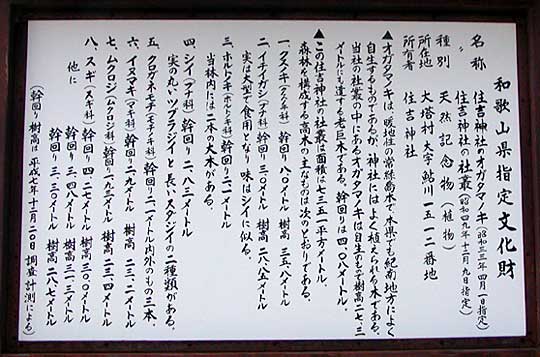 和歌山県指定文化財
名称 住吉神社のオガタマノキ(昭和三三年四月一日指定)
住吉神社の社叢(昭和四九年十二月九日指定)
種別 天然記念物(植物)
所在地 大塔村大字鮎川一五一二番地
所有者 住吉神社
▲オガタマノキは、暖地性の常緑高木で、本県でも紀南地方によく
自生するものであるが、神社にはよく植えられる木である。
当社の社叢の中にあるオガタマノキは自生のもので樹高二七・三
メートルにも達する老巨木である。幹回りは四・〇八メートル。
▲この住吉神社の社叢は面積は七三五一平方メートル、
森林を構成する高木の主なものは次のとおりである。
一、クスノキ(クスノキ科)幹回り八・〇メートル 樹高 三五・八メートル
二、イチイガシ(ブナ科)幹回り三・〇メートル 樹高 二八・五メートル
実は大型で食用となり味はシイに似る。
三、ホルトノキ(ホルトノキ科)幹回り二・一メートル
当林内には二本の大木がある。
四、シイ(ブナ科)幹回り二・八三メートル
実の丸いツブラジイと長いスダジイの二種類がある。
五、クロガネモチ(モチノキ科)幹回り二・一メートル内外のもの三本、
六、イヌマキ(マキ科)幹回り二・九メートル 樹高 二三・メートル
七、ムクロジ(ムクロジ科)幹回り一・九三メートル 樹高 二三・四メートル
八、スギ(スギ科)幹回り 四・二七メートル 樹高 三〇・〇メートル
他に 幹回り 三・四八メートル 樹高 三一・三メートル
幹回り 三・三〇メートル 樹高 二八・七メートル
(幹回り 樹高は 平成七年十二月二〇日 調査計測による)